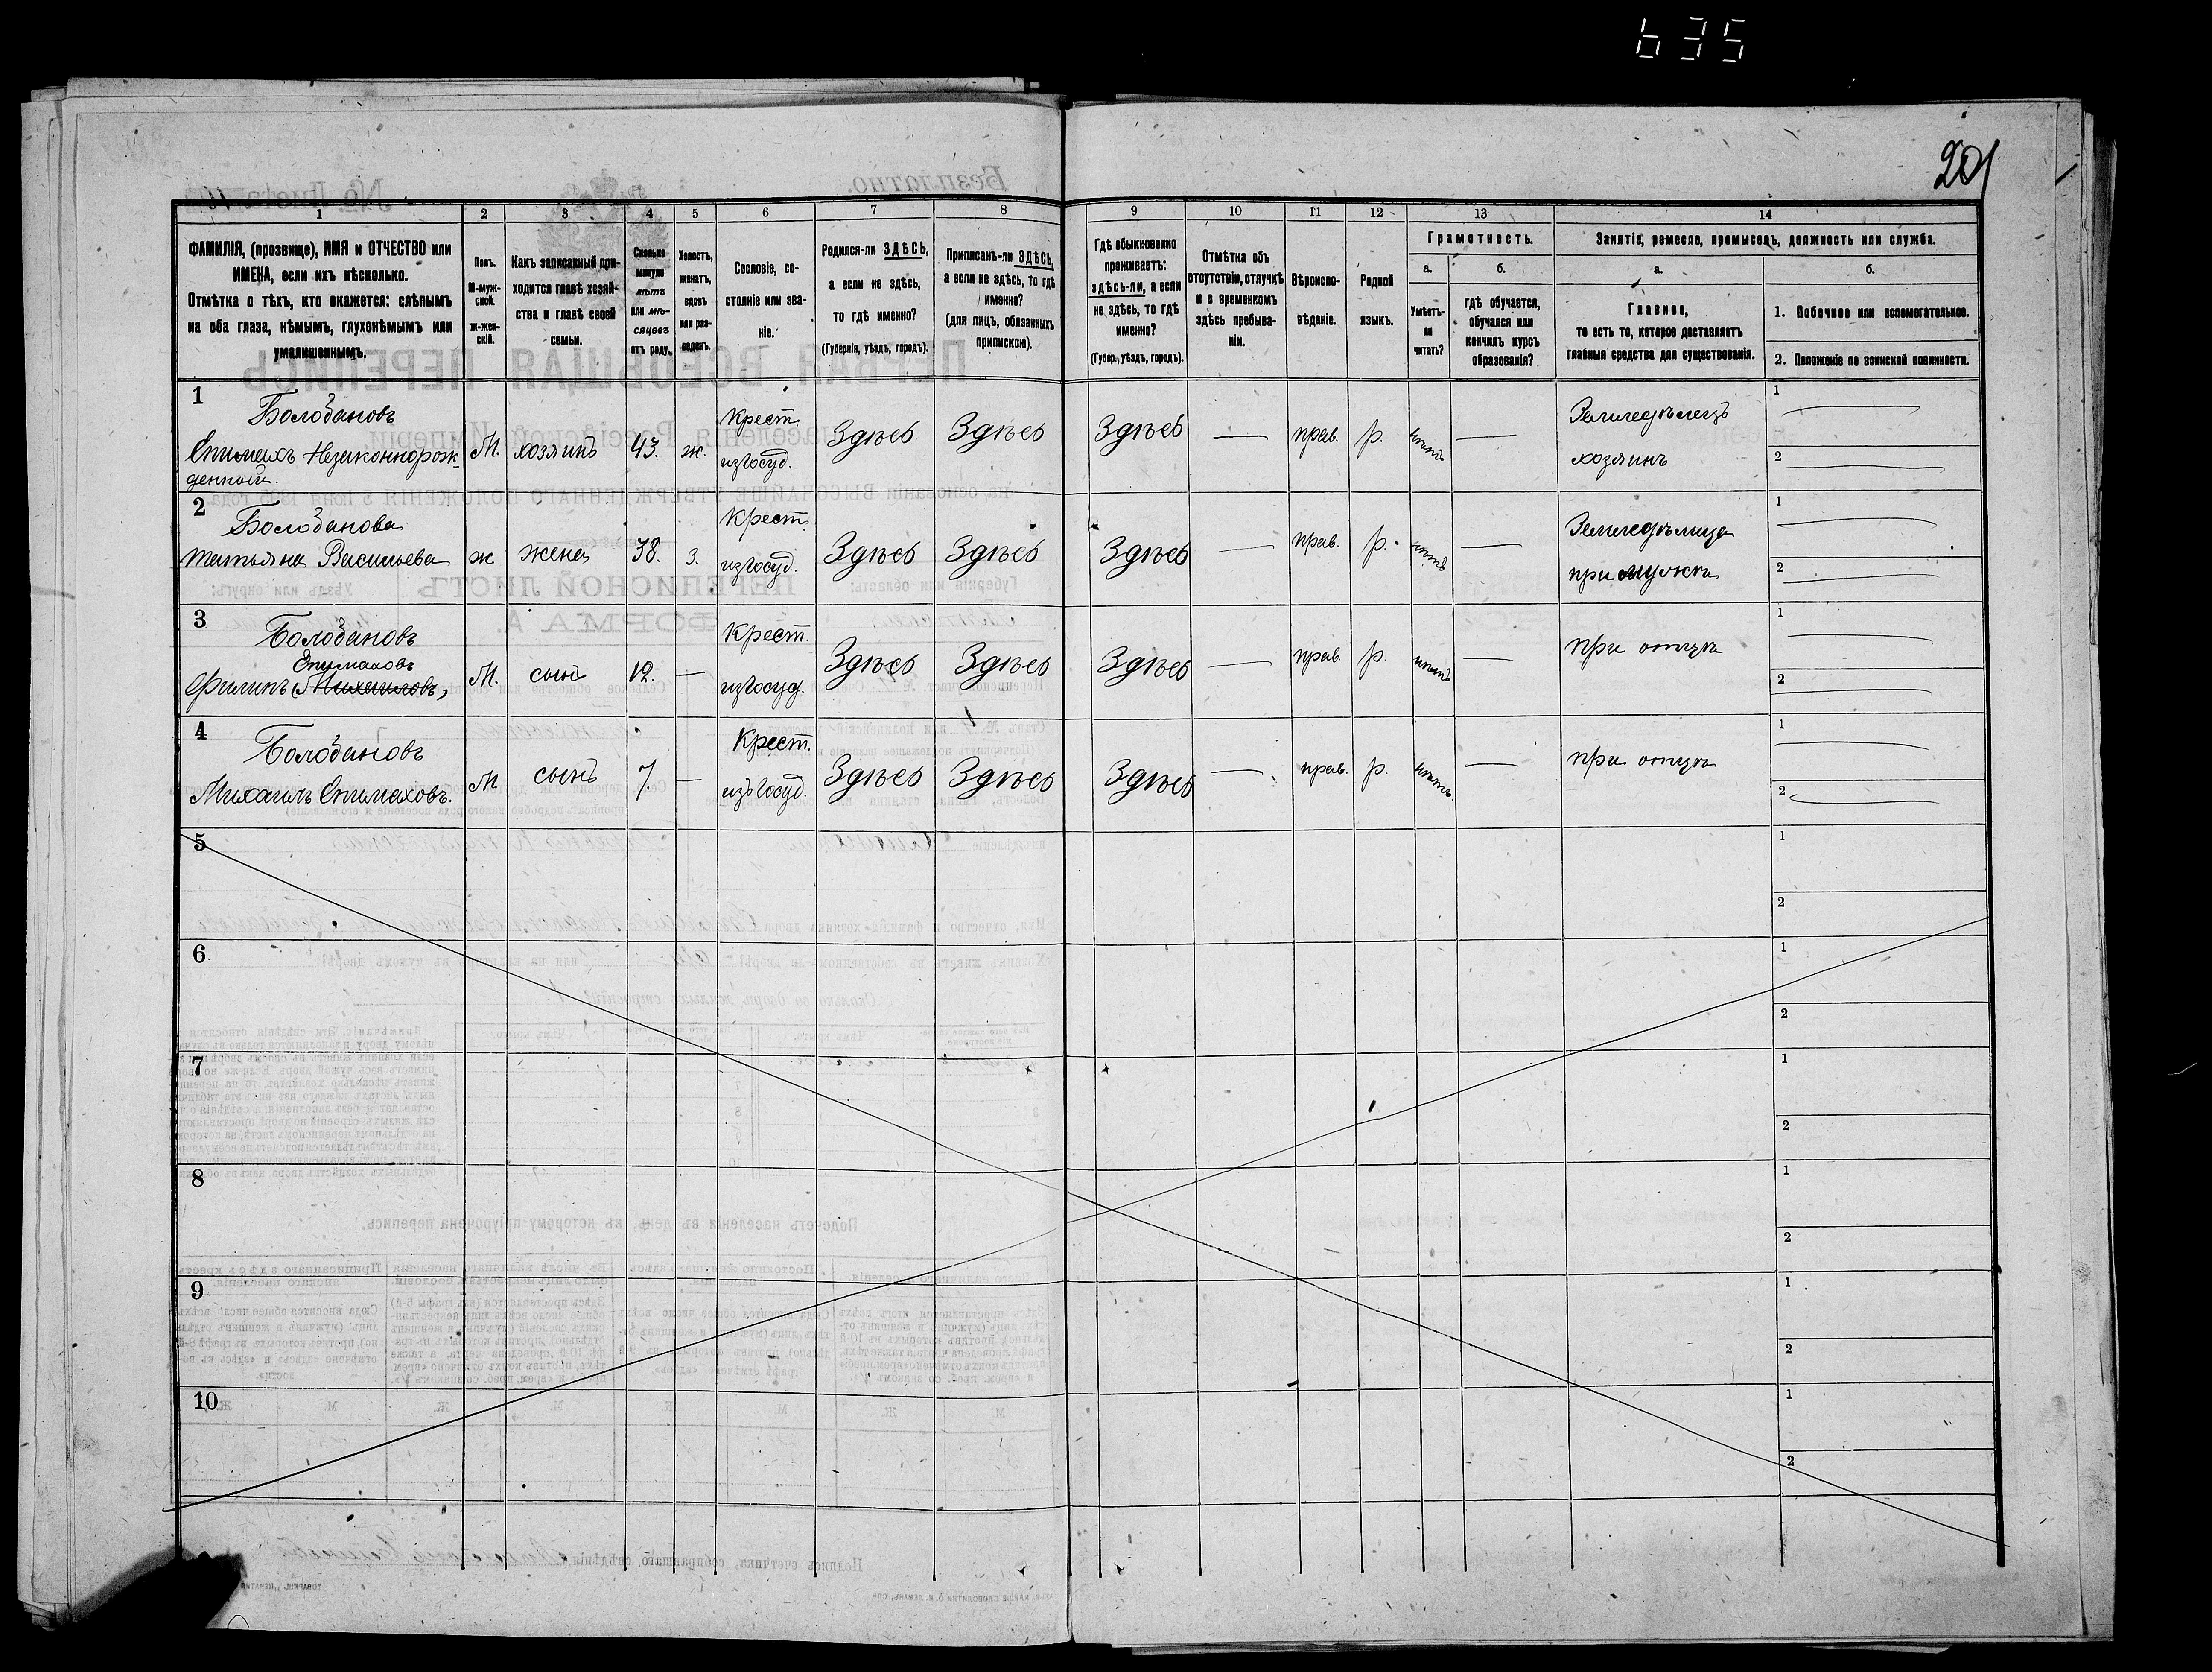 635
201
1 2 3 4 5 6 7 8 9 10 11 12 13 14
ФАМИЛІЯ, (прозвище), ИМЯ и ОТЧЕСТВО или
ИМЕНА, если ихъ нѣсколько.
Отмѣтка о тѣхъ, кто окажется: слѣпымъ
на оба глаза, нѣмымъ, глухонѣмымъ или
умалишеннымъ.
Полъ.
М-муж-
ской.
Ж-жен-
скій.
Какъ записанный при-
ходится главѣ хозяй-
ства и главѣ своей
семьи.
Сколько
минуло
лѣтъ
или мѣ-
сяцевъ
отъ роду.
Холостъ,
женатъ,
вдовъ
или раз-
веденъ.
Сословіе, со-
стояніе или зва-
ніе.
Родился-ли ЗДѢСЬ,
а если не здѣсь,
то гдѣ именно?
(Губернія, уѣздъ, городъ).
Приписанъ-ли ЗДѢСЬ,
а если не здѣсь, то гдѣ
именно?
(для лицъ, обязанныхъ
припискою).
Гдѣ обыкновенно
проживаетъ:
здѣсь-ли, а если
не здѣсь, то гдѣ
именно?
(Губер., уѣздъ, городъ).
Отмѣтка объ
отсутствіи, отлучкѣ
и о временномъ
здѣсь пребыва-
ніи.
Вѣроиспо-
вѣданіе.
Родной
языкъ.
Грамотность.
а.
Умѣетъ-
ли
читать?
б.
гдѣ обучается,
обучался или
кончилъ курсъ
образованія?
Занятіе, ремесло, промыселъ, должность или служба.
а.
Главное,
то есть то, которое доставляетъ
главныя средства для существованія.
б.
1. Побочное или вспомогательное.
2. Положеніе по воинской повинности.
1
Болобановъ
Епимахъ Незаконнорож-
денный.
М. хозяинъ 43. ж.
Крест.
изъ госуд.
Здѣсь Здѣсь Здѣсь — прав. р. нѣтъ —
Земледѣлецъ
хозяинъ
1
2
2
Болобанова
Татьяна Васильева
ж жена 38. з.
Крест.
изъ госуд.
Здѣсь Здѣсь Здѣсь — прав. р. нѣтъ —
Земледѣлица
при мужѣ
1
2
3
Болобановъ
Епимаховъ
Филипъ Михаиловъ,
М. сынъ 12. —
Крест.
изъ госуд.
Здѣсь Здѣсь Здѣсь — прав р. нѣтъ —
при отцѣ
1
2
4
Болобановъ
Михаилъ Епимаховъ.
М сынъ 7. —
Крест.
изъ госуд.
Здѣсь Здѣсь Здѣсь — прав. р. нѣтъ. —
при отцѣ
1
2
5
1
2
6
1
2
7
1
2
8
1
2
9
1
2
10
1
2